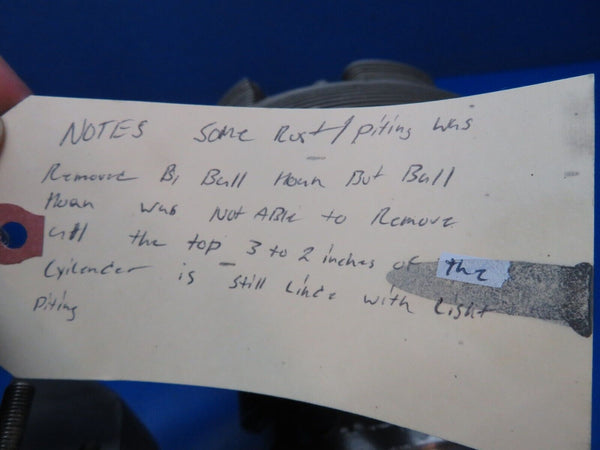 NOTES some Rust/piting was
Remove Bi Ball Hoan But Ball
Hoan was Not Able to Remove
all the top 3 to 2 inches of the
Cyilender is still Linde with Light
Piting